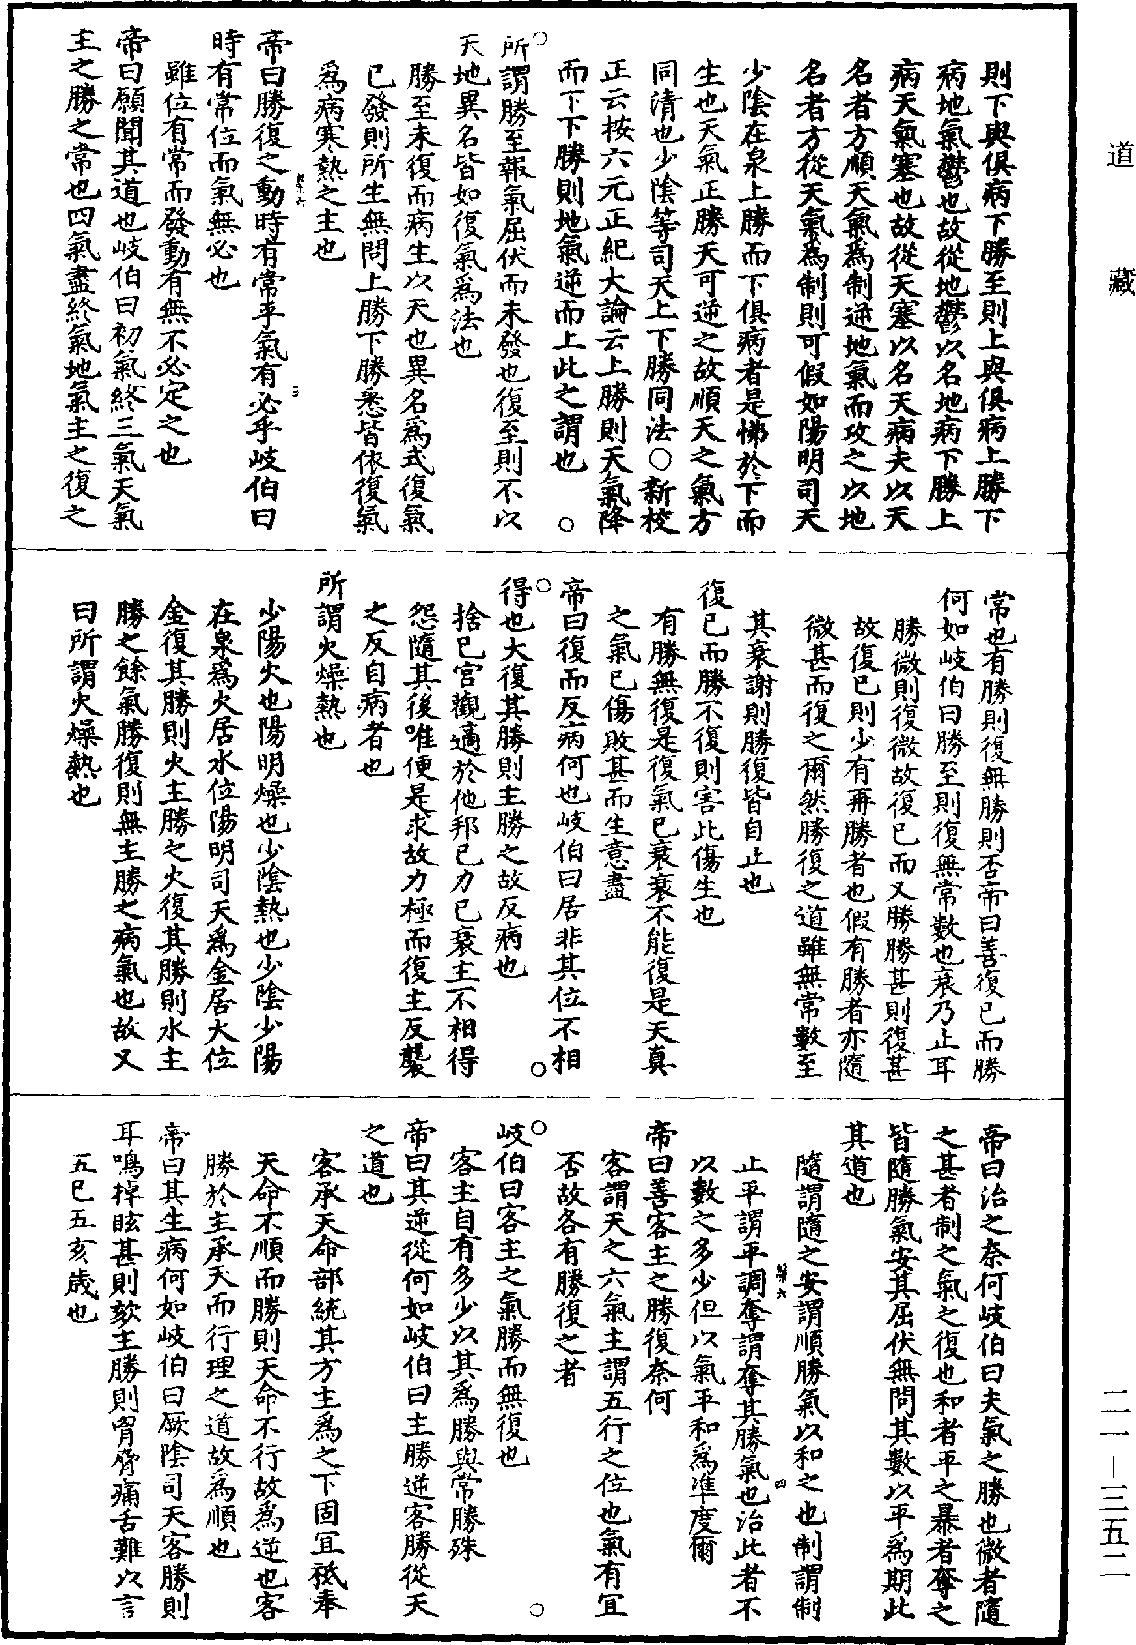 道藏
則下與俱病下勝至則上與俱病上勝下
病地氣鬱也故從地鬱以名地病下勝上
病天氣塞也故從天塞以名天病夫以天
名者方順天氣爲制逆地氣而攻之以地
名者方從天氣爲制則可假如陽明司天
少陰在泉上勝而下俱病者是怫於下而
生也天氣正勝天可逆之故順天之氣方
同清也少陰等司天上下勝同法○新校
正云按六元正紀大論云上勝則天氣降
而下下勝則地氣逆而上此之謂也○
○所謂勝至報氣屈伏而未發也復至則不以
天地異名皆如復氣爲法也
勝至未復而病生以天也異名爲式復氣
已發則所生無問上勝下勝悉皆依復氣
爲病寒熱之主也
帝曰勝復之動時有常乎氣有必乎岐伯曰
時有常位而氣無必也
雖位有常而發動有無不必定之也
帝曰願聞其道也岐伯曰初氣終三氣天氣
主之勝之常也四氣盡終氣地氣主之復之
常也有勝則復無勝則否帝曰善復已而勝
何如岐伯曰勝至則復無常數也衰乃止耳
勝微則復微故復已而又勝勝甚則復甚
故復已則少有再勝者也假有勝者亦隨
微甚而復之爾然勝復之道雖無常數至
其衰謝則勝復皆自止也
復已而勝不復則害此傷生也
有勝無復是復氣已衰衰不能復是天真
之氣已傷敗甚而生意盡
帝曰復而反病何也岐伯曰居非其位不相
得也大復其勝則主勝之故反病也
○捨已宮觀適於他邦已力已衰主不相得○
怨隨其後唯便是求故力極而復主反襲
之反自病者也
所謂火燥熱也
少陽火也陽明燥也少陰熱也少陰少陽
在泉爲火居水位陽明司天爲金居火位
金復其勝則火主勝之火復其勝則水主
勝之餘氣勝復則無主勝之病氣也故又
曰所謂火燥熱也
帝曰治之奈何岐伯曰夫氣之勝也微者隨
之甚者制之氣之復也和者平之暴者奪之
皆隨勝氣安其屈伏無問其數以平爲期此
其道也
隨謂隨之安謂順勝氣以和之也制謂制
止平謂平調奪謂奪其勝氣也治此者不
以數之多少但以氣平和爲準度爾
帝曰善客主之勝復奈何
客謂天之六氣主謂五行之位也氣有宜
否故各有勝復之者
○岐伯曰客主之氣勝而無復也○
客主自有多少以其爲勝與常勝殊
帝曰其逆從何如岐伯曰主勝逆客勝從天
之道也
客承天命部統其方主爲之下固宜祗奉
天命不順而勝則天命不行故爲逆也客
勝於主承天而行理之道故爲順也
帝曰其生病何如岐伯曰厥陰司天客勝則
耳鳴掉眩甚則欬主勝則胷脅痛舌難以言
五巳五亥歲也
二一—三五二